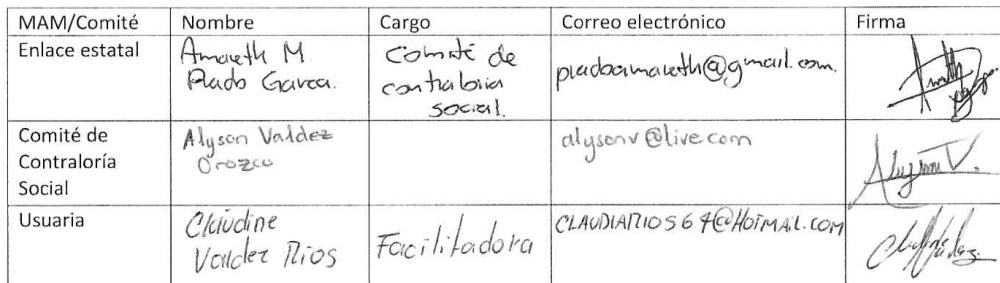 MAM/Comité Nombre Cargo Correo electrónico Firma
Enlace estatal
Amareth M
Prado Garca.
Comité de
contraloria
social.
pradoamareth@gmail.com.
Comité de
Contraloría
Social
Alyson Valdez
Orozco
alysonv@live.com
Alyson V.
Usuaria
Claudine
Valdez Rios
Facilitadora
CLAUDIARIOS64@HOTMAIL.COM